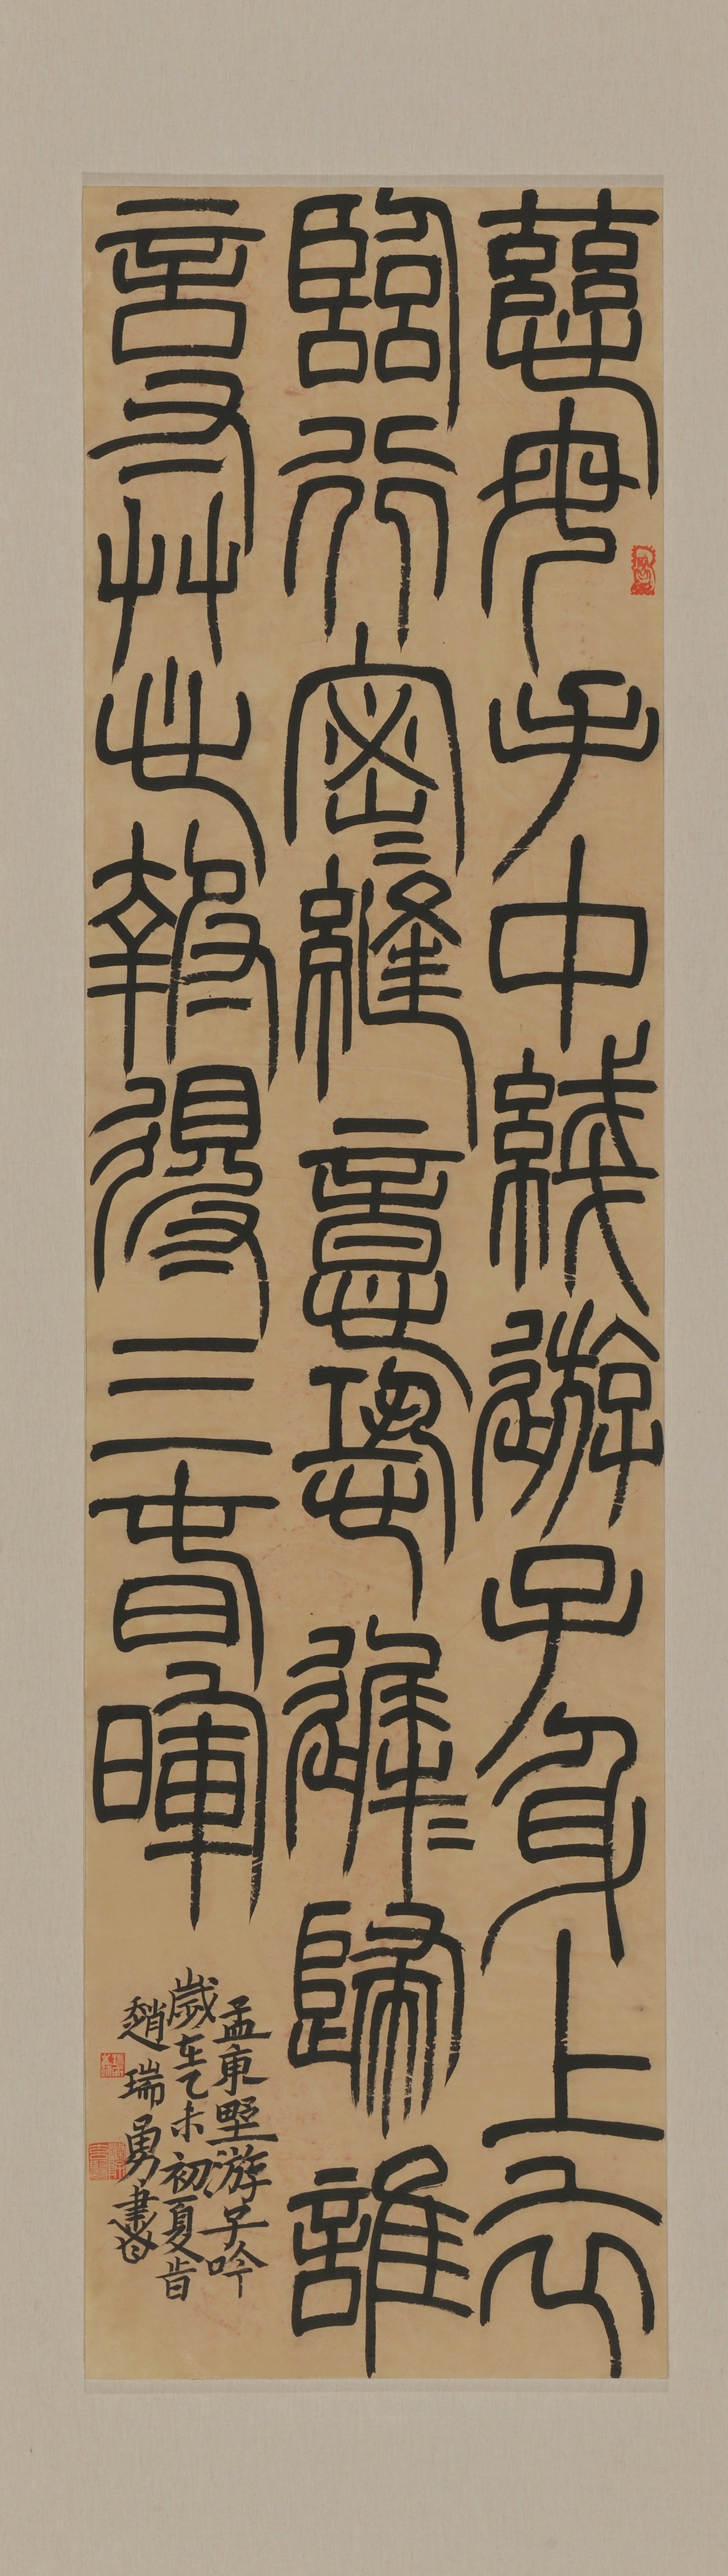 慈母手中綫遊子身上衣
臨行密〻縫意恐遲〻歸誰
言寸艸心報得三春暉
孟東野游子吟
歲在乙未初夏旹
趙瑞勇書